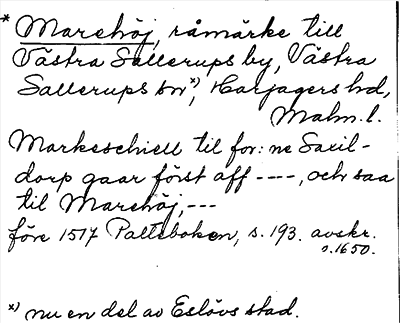 * Marehöj, råmärke till
Västra Sallerups by, Västra
Sallerups sn*), Harjagers hd,
Malm. l.
Markeschiell til for:ne Saxil-
dorp gaar först aff ----, och saa
til Marehöj, ---
före 1517 Palteboken, s. 193. avskr.
s. 1650.
*) nu en del av Eslövs stad.